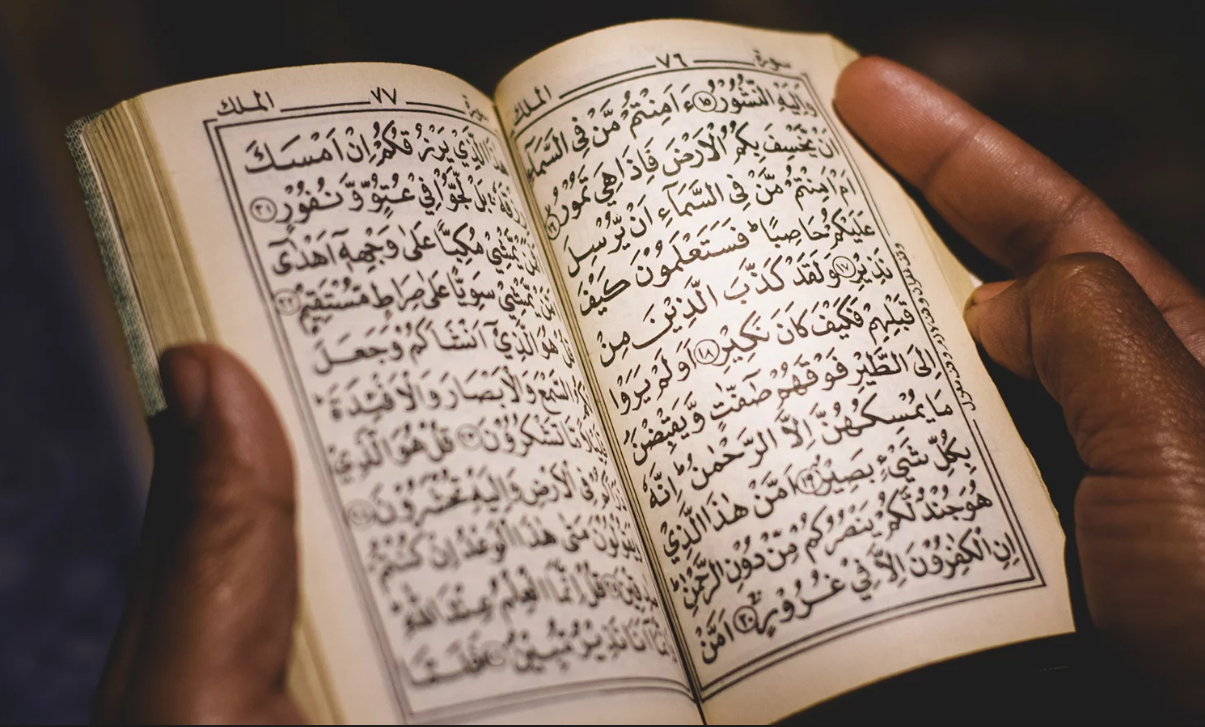 سورة ٧٦ الملك
وَاِلَيۡهِ النُّشُوۡرُ ۝١٥ ءَاَمِنۡتُمۡ مَّنۡ فِى السَّمَآءِ
اَنۡ يَّخۡسِفَ بِكُمُ الۡاَرۡضَ فَاِذَا هِىَ تَمُوۡرُ ۝١٦
اَمۡ اَمِنۡتُمۡ مَّنۡ فِى السَّمَآءِ اَنۡ يُّرۡسِلَ
عَلَيۡكُمۡ حَاصِبًا ؕ فَسَتَعۡلَمُوۡنَ كَيۡفَ
نَذِيۡرِ ۝١٧ وَلَقَدۡ كَذَّبَ الَّذِيۡنَ مِنۡ
قَبۡلِهِمۡ فَكَيۡفَ كَانَ نَكِيۡرِ ۝١٨ اَوَلَمۡ يَرَوۡا
اِلَى الطَّيۡرِ فَوۡقَهُمۡ صٰٓفّٰتٍ وَّيَقۡبِضۡنَ
مَا يُمۡسِكُهُنَّ اِلَّا الرَّحۡمٰنُ ؕ اِنَّهٗ
بِكُلِّ شَىۡءٍۢ بَصِيۡرٌ ۝١٩ اَمَّنۡ هٰذَا الَّذِىۡ
هُوَ جُنۡدٌ لَّكُمۡ يَنۡصُرُكُمۡ مِّنۡ دُوۡنِ الرَّحۡمٰنِ ؕ
اِنِ الۡكٰفِرُوۡنَ اِلَّا فِىۡ غُرُوۡرٍ ۝٢٠ اَمَّنۡ
٧٧ الملك
هٰذَا الَّذِىۡ يَرۡزُقُكُمۡ اِنۡ اَمۡسَكَ
رِزۡقَهٗ ۚ بَلۡ لَّجُّوۡا فِىۡ عُتُوٍّ وَّنُفُوۡرٍ ۝٢١
يَّمۡشِىۡ مُكِبًّا عَلٰى وَجۡهِهٖۤ اَهۡدٰٓى
يَّمۡشِىۡ سَوِيًّا عَلٰى صِرَاطٍ مُّسۡتَقِيۡمٍ ۝٢٢
قُلۡ هُوَ الَّذِىۡۤ اَنۡشَاَكُمۡ وَجَعَلَ
السَّمۡعَ وَالۡاَبۡصَارَ وَالۡاَفۡـِٕدَةَ ؕ
مَّا تَشۡكُرُوۡنَ ۝٢٣ قُلۡ هُوَ الَّذِىۡ
فِى الۡاَرۡضِ وَاِلَيۡهِ تُحۡشَرُوۡنَ ۝٢٤
وَيَقُوۡلُوۡنَ مَتٰى هٰذَا الۡوَعۡدُ اِنۡ كُنۡتُمۡ
صٰدِقِيۡنَ ۝٢٥ قُلۡ اِنَّمَا الۡعِلۡمُ عِنۡدَ اللّٰهِ
وَاِنَّمَاۤ اَنَا نَذِيۡرٌ مُّبِيۡنٌ ۝٢٦ فَلَمَّا